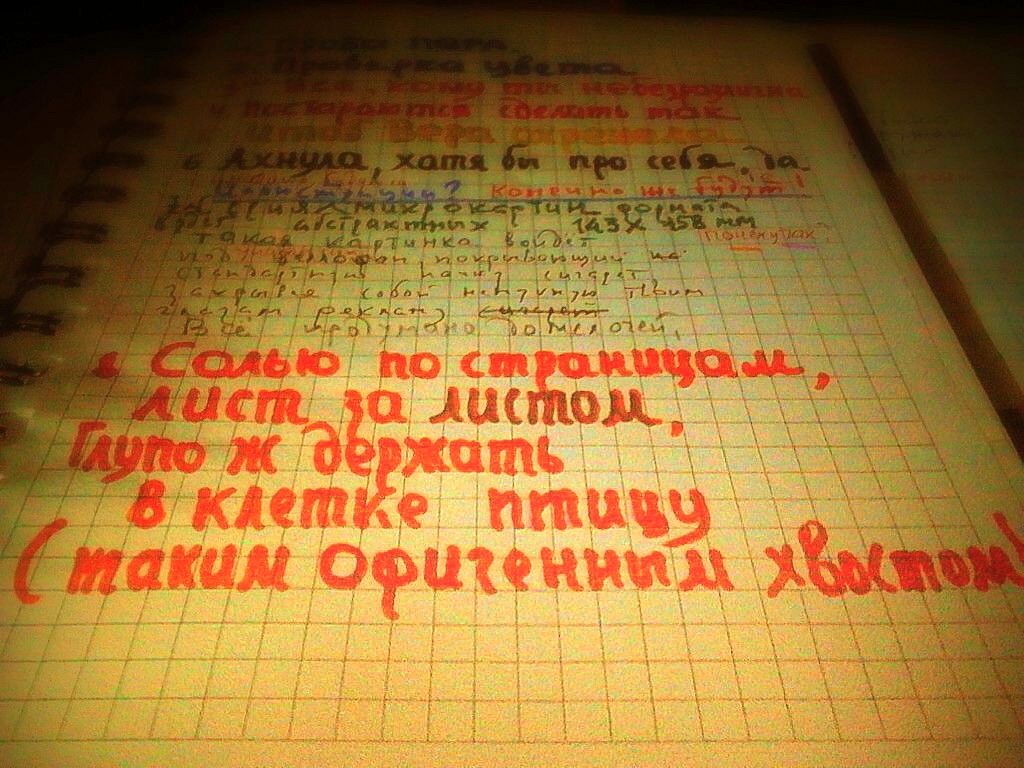 Проба пера.
Проверка цвета
Все, кому ты небезразлична
Постараются сделать так
Чтоб Вера окрепла.
6 Ахнула, хатя бы про себя, да
Иллюстрации? Конечно же будут!
микрокартин формата
абстрактных : 143 X 458 мм
Почему так?
такая картинка войдёт
под целлофан, покрывающий
стандартную пачку сигарет,
Закрывая собой ненужную твоим
глазам рекламу сигарет
Всё продумано до мелочей.
Солью по страницам,
лист за листом,
Глупо ж держать
в клетке птицу
(таким Офигенным хвостом!